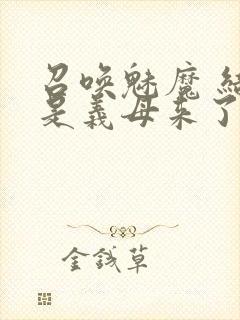 召唤魅魔 结
是義母来了
金钱草